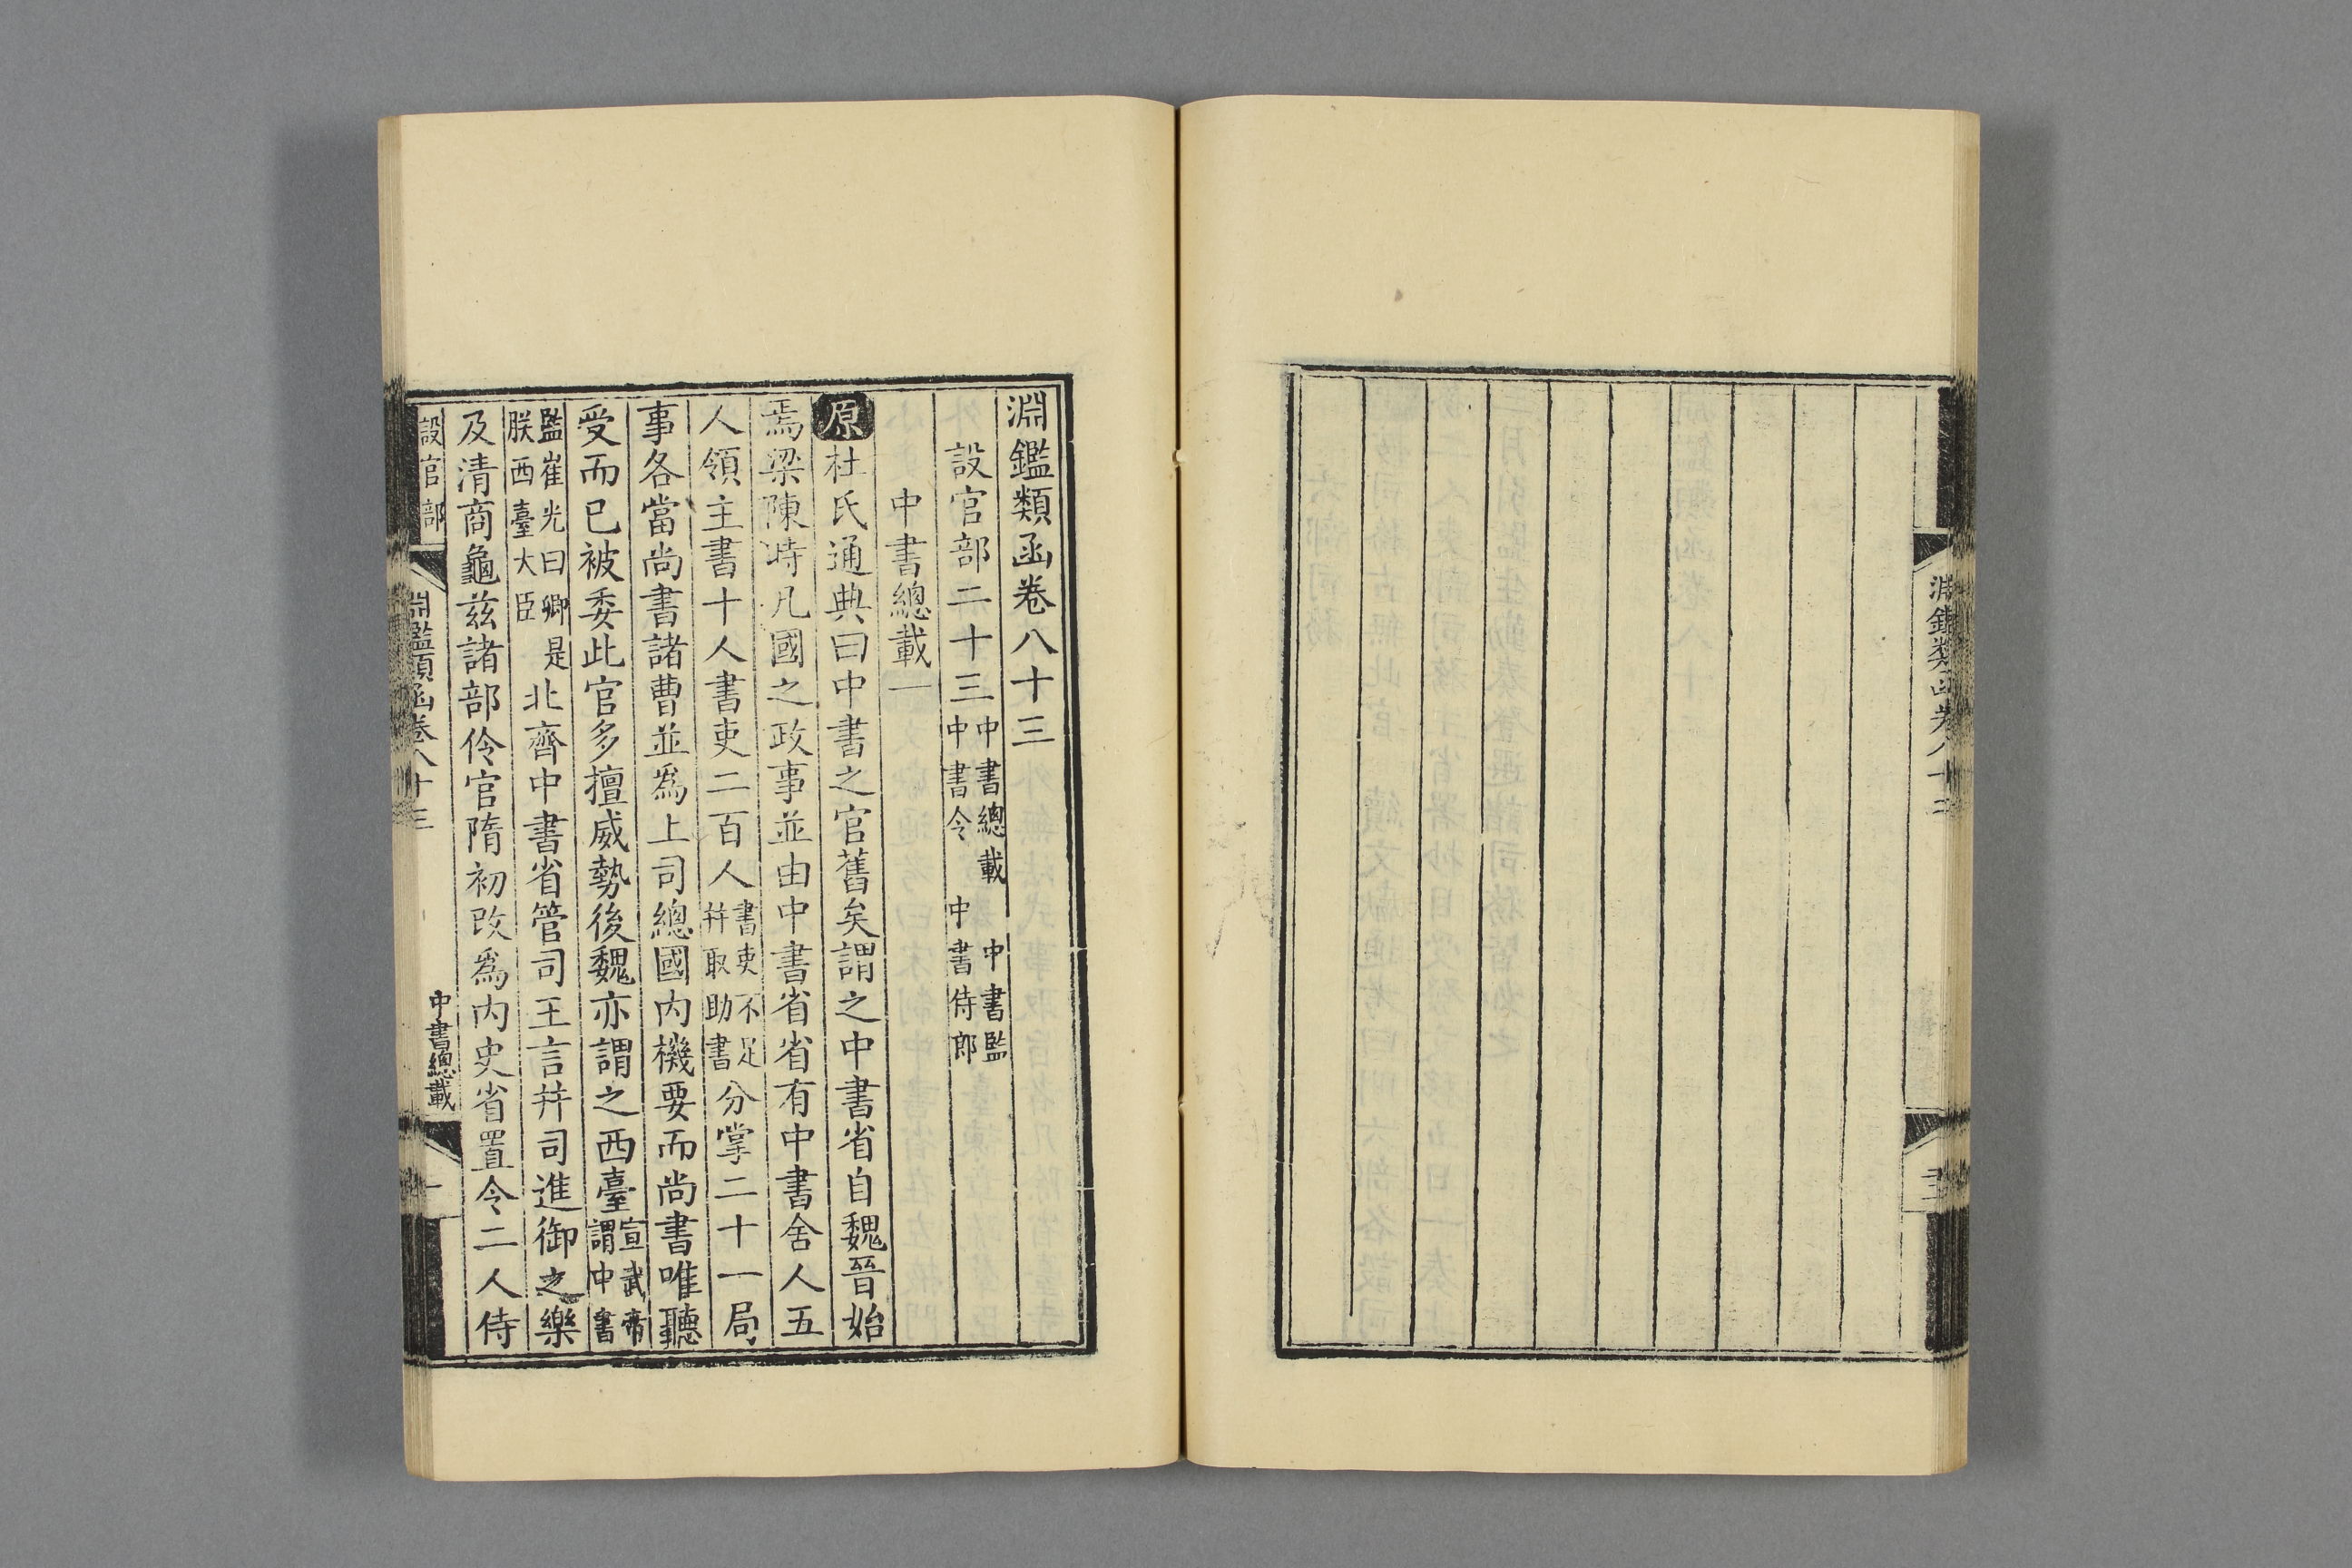 淵鑑類函卷八十三
設官部二十三中書總載 中書監 中書令 中書侍郎
中書總載一
原杜氏通典曰中書之官舊矣謂之中書省自魏晉始
焉梁陳時凡國之政事並由中書省省有中書舍人五
人領主書十人書吏二百人書吏不足并取助書分掌二十一局
事各當尚書諸曹並為上司總國内機要而尚書唯聽
受而已被委此官多擅威勢後魏亦謂之西臺宣武帝謂中書
監崔光曰卿是朕西臺大臣北齊中書省管司王言并司進御之樂
及清商龜兹諸部伶官隋初改為内史省置令二人侍
設官部 淵鑑類函卷八十三 中書總載 一
淵鑑類函卷八十二